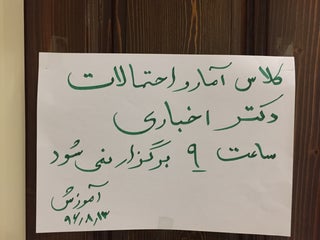 کلاس آمار و احتمالات
دکتر اخباری
ساعت ۹ برگزار نمی شود
آموزش
۹۶/۸/۱۳